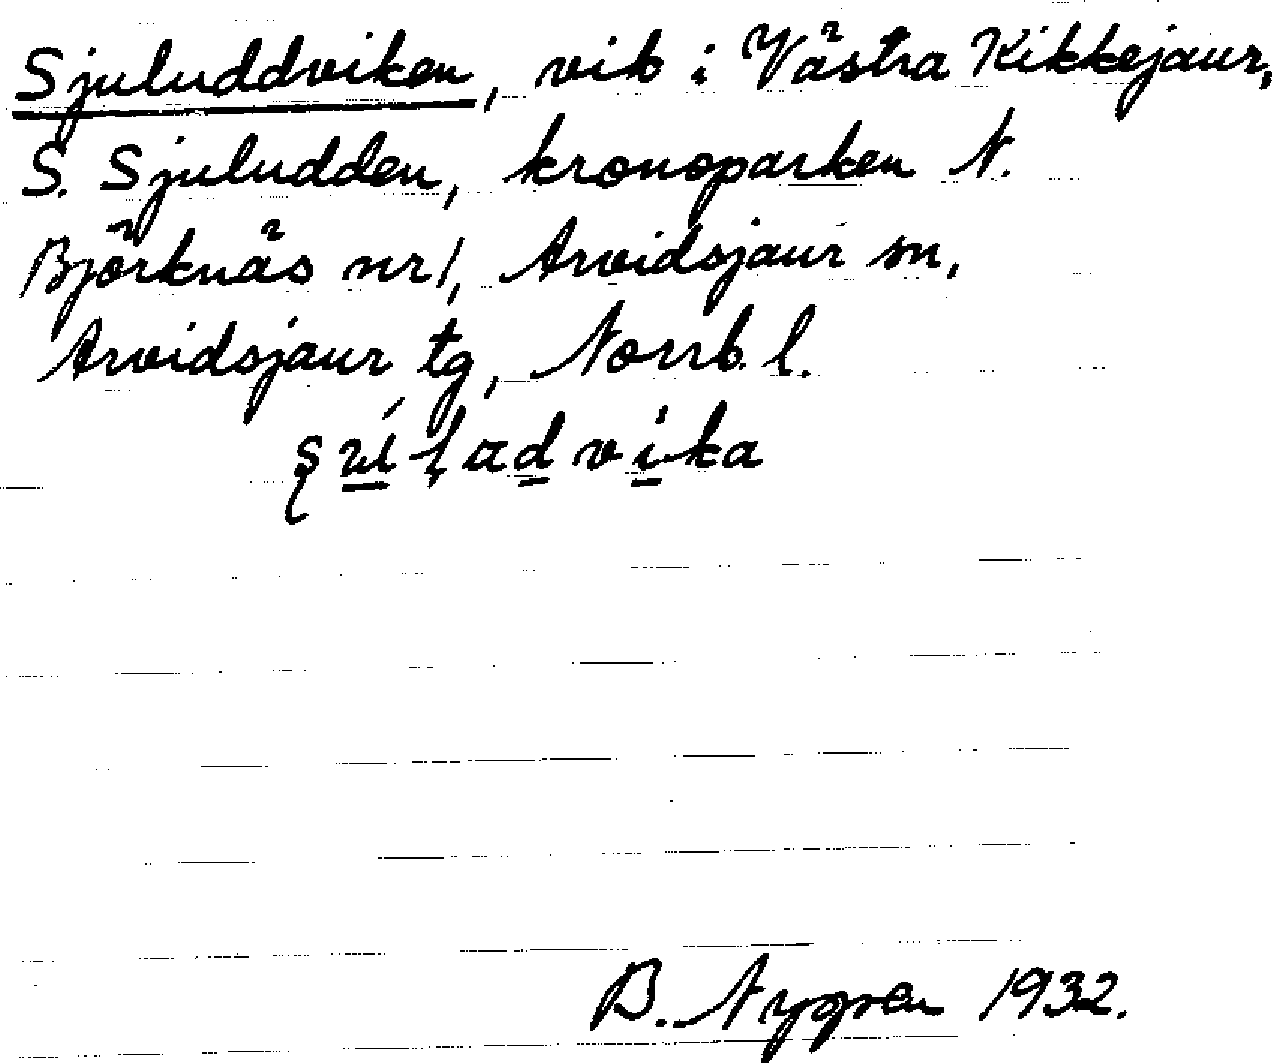 Sjuluddviken, vik i Västra Kikkejaur,
S. Sjuludden, kronoparken N.
Björknäs nr 1, Arvidsjaur sn,
Arvidsjaur tg, Norrb. l.
B. Nygren 1932.